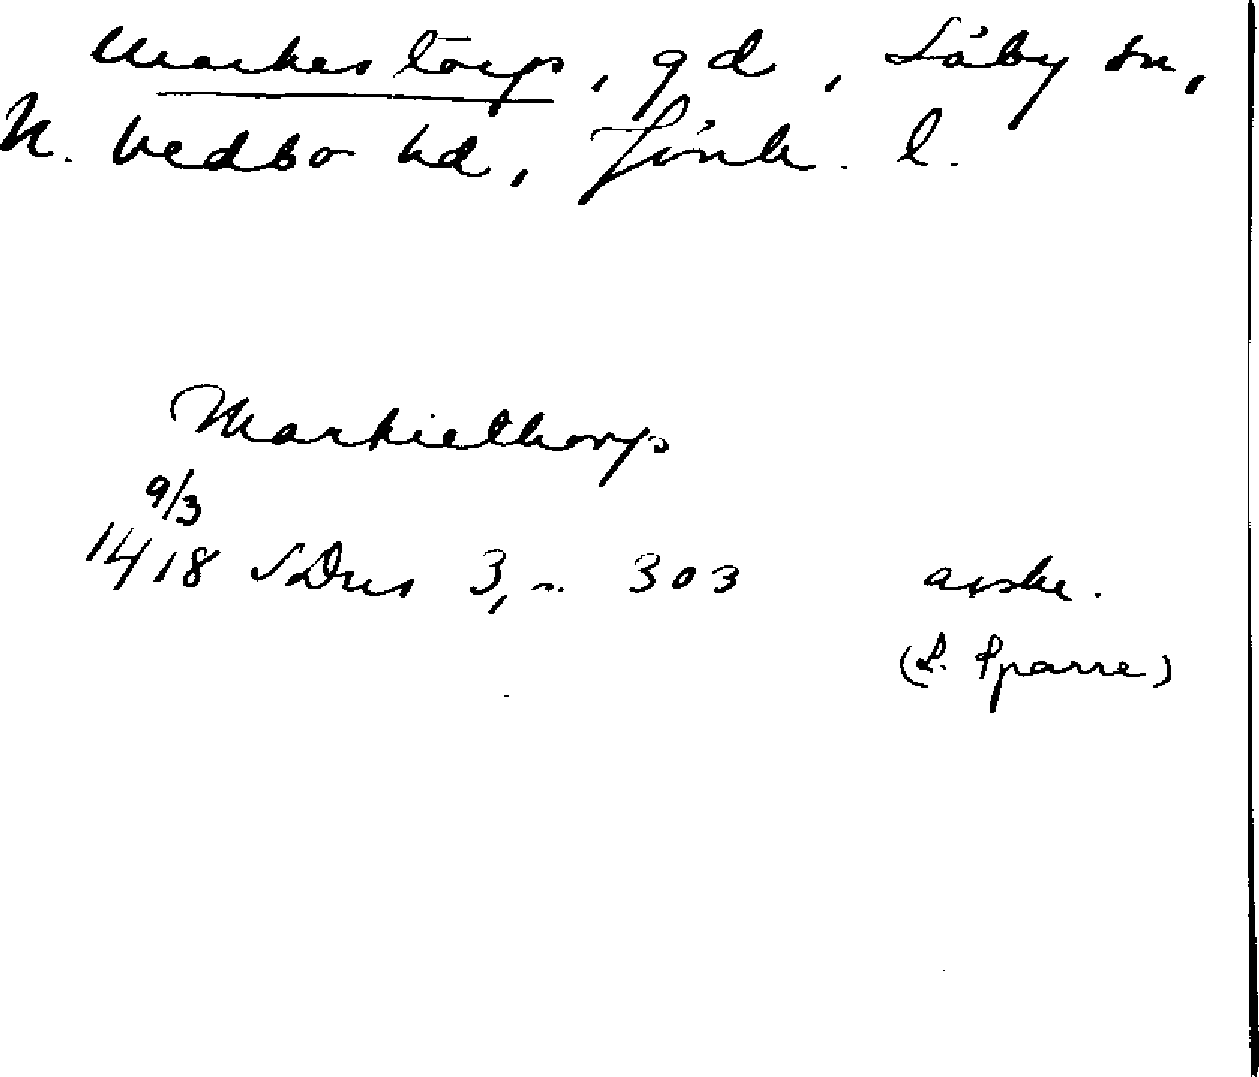 Markestorp, gd, Säby sn,
N. Vedbo hd, Jönk. l.
Markiethorp
9/3
1418 SDns 3, s. 303 avskr.
(L. Sparre)